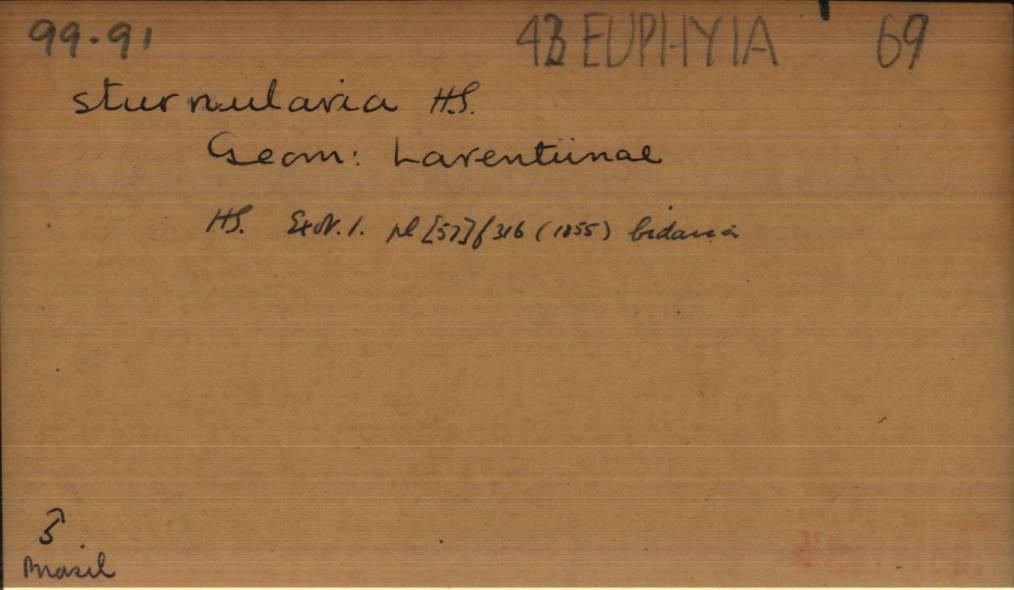 99.91 43 EUPHYIA 69
sturnularia H.S.
Geom: Larentiinae
HS. ExSt. 1. pl [57] f 316 (1855) bidaria
♂
Brasil